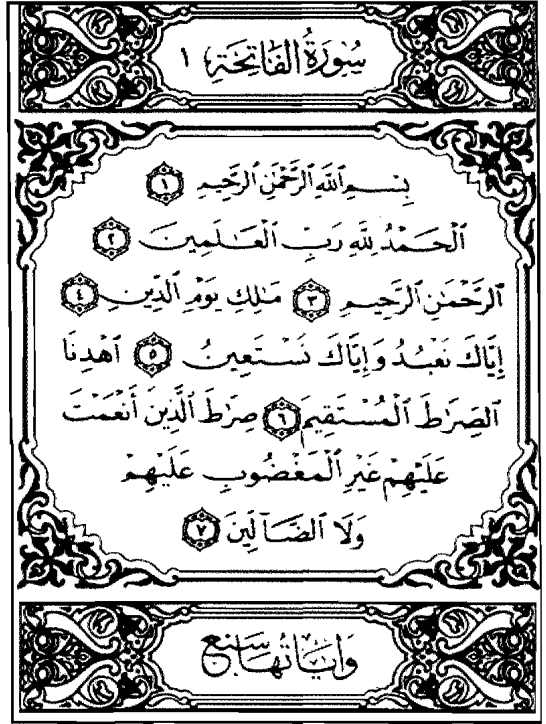 سُورَةُ الفَاتِحَةِ ١
بِسْمِ ٱللَّهِ ٱلرَّحْمَٰنِ ٱلرَّحِيمِ ١
ٱلْحَمْدُ لِلَّهِ رَبِّ ٱلْعَٰلَمِينَ ٢
ٱلرَّحْمَٰنِ ٱلرَّحِيمِ ٣ مَٰلِكِ يَوْمِ ٱلدِّينِ ٤
إِيَّاكَ نَعْبُدُ وَإِيَّاكَ نَسْتَعِينُ ٥ ٱهْدِنَا
ٱلصِّرَٰطَ ٱلْمُسْتَقِيمَ ٦ صِرَٰطَ ٱلَّذِينَ أَنْعَمْتَ
عَلَيْهِمْ غَيْرِ ٱلْمَغْضُوبِ عَلَيْهِمْ
وَلَا ٱلضَّآلِّينَ ٧
وَآيَاتُهَا سَبْعٌ